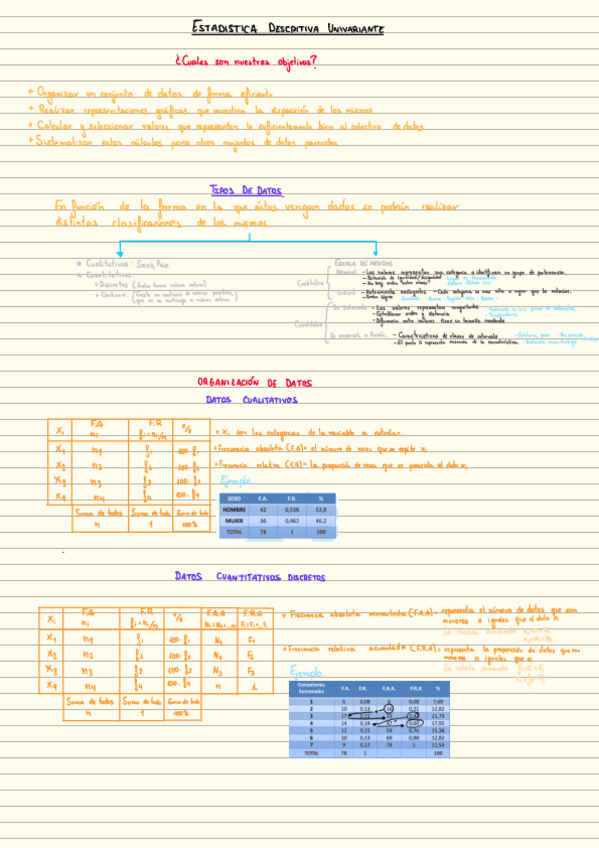 ESTADISTICA DESCRITIVA UNIVARIANTE
¿Cuales son nuestros objetivos?
+ Organizar un conjunto de datos de forma eficiente
+ Realizar representaciones gráficas que muestren la disposición de los mismos
+ Calcular y seleccionar valores que representen lo suficientemente bien al colectivo de datos
+ Sistematizar estos cálculos para otros conjuntos de datos parecidos
TIPOS DE DATOS
En función de la forma en la que éstos vengan dados se podrán realizar
distintas clasificaciones de los mismos
* Cualitativos: Sexo, Pais
+ Cuantitativo:
+ Discretos (Solo toman valores enteros)
+ Continuo.
ESCALA DE MEDIDAS
Cualitativo
Nominal - Los valores representan una categoria o identifican un grupo de pertenencia.
- Relación de igualdad/desigualdad
- No hay orden entre clases
Ordinal
Cuantitativo
De Intervalo - Los valores representan magnitudes
- Establecer orden y distancia
- Diferencia entre valores tiene un tamaño constante
De proporción o Razón. - Características de clases de intervalo
- El punto 0 representa ausencia de la característica.
ORGANIZACIÓN DE DATOS
DATOS CUALITATIVOS
Xi F.A ni F.R fi=ni/n %
X1 n1 f1 100·f1
X2 n2 f2 100·f2
X3 n3 f3 100·f3
X4 n4 f4 100·f4
Suma de todos n Suma de todos 1 Suma de todo 100%
+ Xi son las categorias de la variable a estudiar.
+ Frecuencia absoluta (F.A)= el número de veces que se repite xi
+ Frecuencia relativa (F.R)= la proporción de veces que se presenta el dato xi
Ejemplo
SEXO F.A. F.R. %
HOMBRE 42 0,538 53,8
MUJER 36 0,462 46,2
TOTAL 78 1 100
DATOS CUANTITATIVOS DISCRETOS
Xi F.A ni F.R fi=ni/n % F.A.A F.R.A
X1 n1 f1 100·f1 N1 F1
X2 n2 f2 100·f2 N2 F2
X3 n3 f3 100·f3 N3 F3
X4 n4 f4 100·f4 n 1
Suma de todos n Suma de todos 1 Suma de todo 100%
+ Frecuencia absoluta acumulada (F.A.A)= representa el número de datos que son
menores o iguales que el dato xi
+ Frecuencia relativa acumulada (F.R.A)= representa la proporción de datos que son
menores o iguales que xi
Ejemplo
Conexiones Semanales F.A. F.R. F.A.A. F.R.A %
1 6 0,08 6 0,08 7,69
2 10 0,13 16 0,21 12,82
3 17 0,22 33 0,42 21,79
4 14 0,18 47 0,60 17,95
5 12 0,15 59 0,76 15,38
6 10 0,13 69 0,88 12,82
7 9 0,12 78 1 11,54
TOTAL 78 1 100